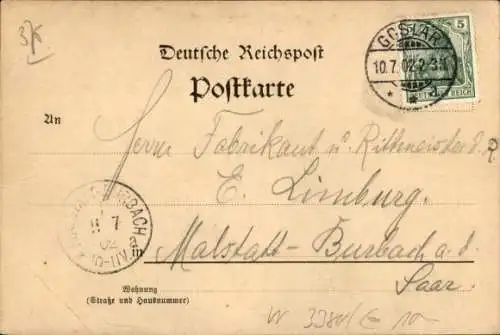 3K
Deutsche Reichspost
Postkarte
GOSLAR
10.7.02.2-3N
5
REICH
An
Herrn Fabrikant u. Rittmeister d. R
E. Limburg.
Malstatt-Burbach a. d.
Saar.
BACH
11 7
02
in
Wohnung
(Straße und Hausnummer)